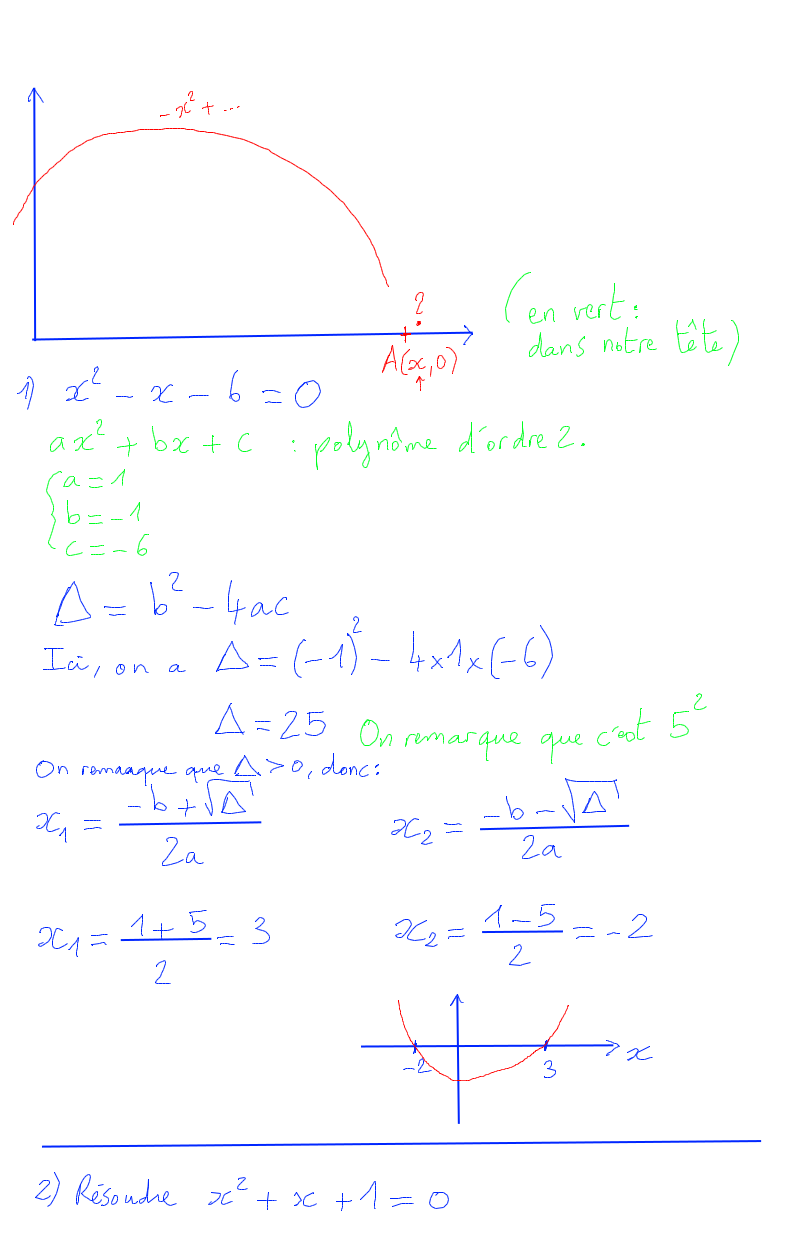 -x² + ...
?
A(x,0)
↑
(en vert :
dans notre tête)
1) x² - x - 6 = 0
ax² + bx + c : polynôme d'ordre 2.
{ a = 1
b = -1
c = -6
Δ = b² - 4ac
Ici, on a Δ = (-1)² - 4×1×(-6)
Δ = 25 On remarque que c'est 5²
On remarque que Δ > 0, donc :
x₁ = (-b + √Δ)/2a x₂ = (-b - √Δ)/2a
x₁ = (1 + 5)/2 = 3 x₂ = (1 - 5)/2 = -2
x
-2 3
2) Résoudre x² + x + 1 = 0